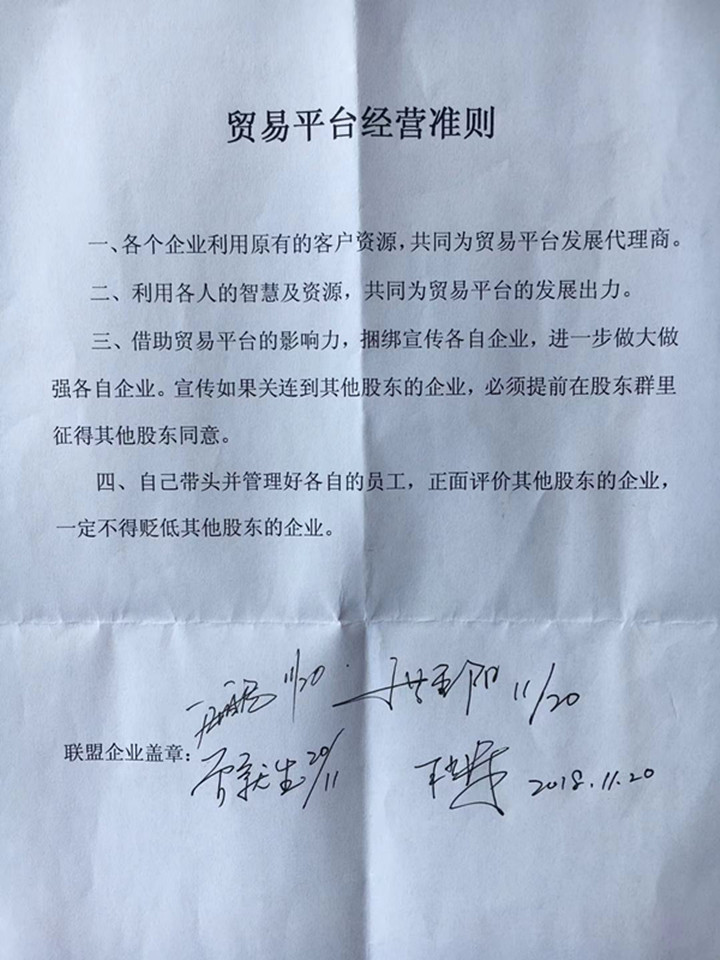 贸易平台经营准则
一、各个企业利用原有的客户资源，共同为贸易平台发展代理商。
二、利用各人的智慧及资源，共同为贸易平台的发展出力。
三、借助贸易平台的影响力，捆绑宣传各自企业，进一步做大做
强各自企业。宣传如果关连到其他股东的企业，必须提前在股东群里
征得其他股东同意。
四、自己带头并管理好各自的员工，正面评价其他股东的企业，
一定不得贬低其他股东的企业。
11/20 11/20
联盟企业盖章：
20/11 2018.11.20